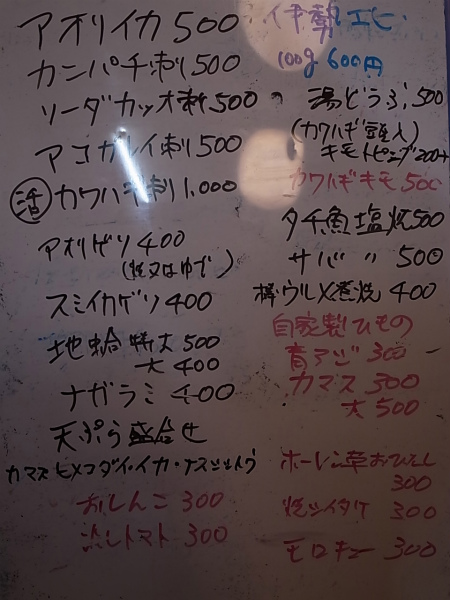 アオリイカ 500
カンパチ刺 500
ソーダカツオ刺 500
アコガレイ刺 500
活 カワハギ刺 1,000
アオリゲソ 400
(焼又はゆで)
スミイカゲソ 400
地蛤 特大 500
大 400
ナガラミ 400
天ぷら盛合せ
カマス ヒメコダイ・イカ・ナス
おしんこ 300
冷しトマト 300
伊勢エビ
100g 600円
湯どうふ 500
(カワハギ頭入)
キモトピング 200
カワハギキモ 500
タチ魚塩焼 500
サバ 〃 500
棒ウルメ巻焼 400
自家製ひもの
青アジ 300
カマス 300
大 500
ホーレン草おひたし
300
焼シイタケ 300
モロキュー 300